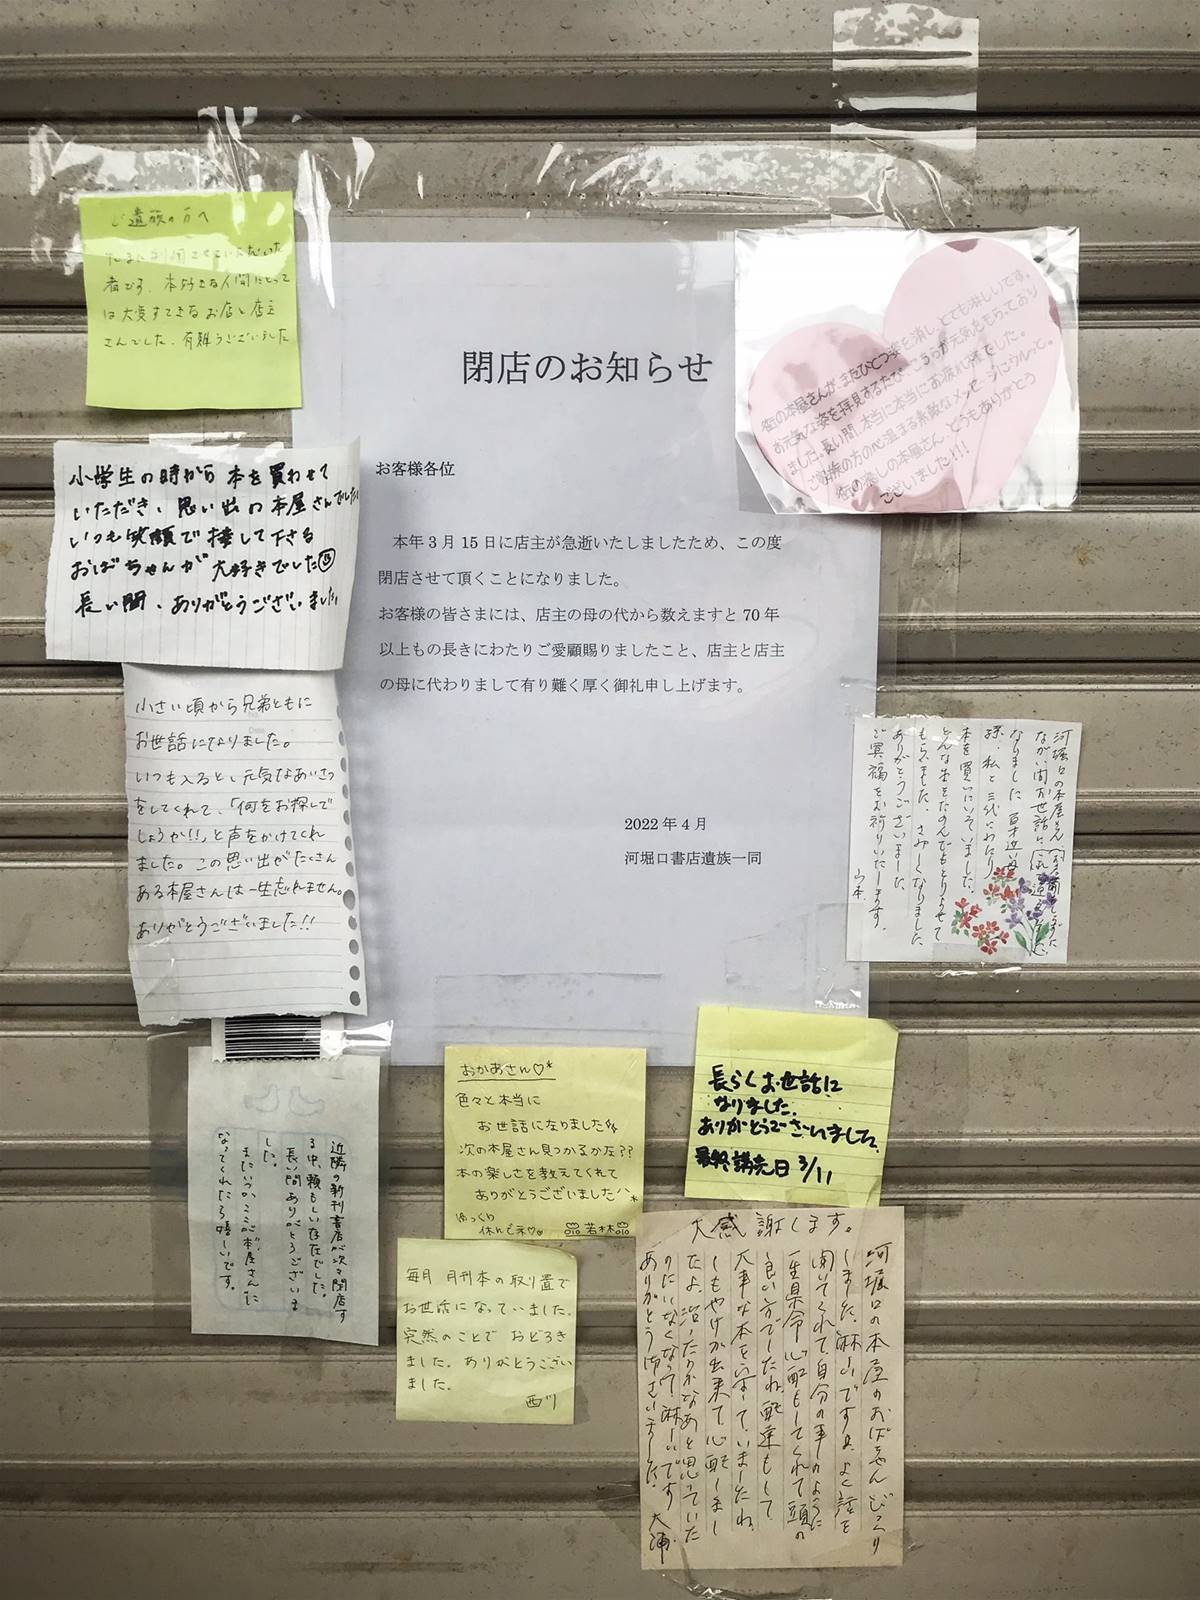 閉店のお知らせ
お客様各位
本年3月15日に店主が急逝いたしましたため、この度
閉店させて頂くことになりました。
お客様の皆さまには、店主の母の代から数えますと70年
以上もの長きにわたりご愛顧賜りましたこと、店主と店主
の母に代わりまして有り難く厚く御礼申し上げます。
2022年4月
河堀口書店遺族一同
ご遺族の方へ
たまに利用させていただいた
者です。本好きな人間にとって
は大変すてきなお店と店主
さんでした。有難うございました
小学生の時から本を買わせて
いただき、思い出の本屋さんでした
いつも笑顔で接して下さる
おばちゃんが大好きでした
長い間、ありがとうございました
小さい頃から兄弟ともに
お世話になりました。
いつも入ると、元気なあいさつ
をしてくれて、「何をお探しで
しょうか!!」と声をかけてくれ
ました。この思い出がたくさん
ある本屋さんは一生忘れません。
ありがとうございました!!
近隣の新刊書店が次々閉店す
る中、頼もしい存在でした。
長い間ありがとうございま
した。
またいつかここが本屋さんに
なってくれたら嬉しいです。
おかあさん♡*
色々と本当に
お世話になりました
次の本屋さん見つかるかな??
本の楽しさを教えてくれて
ありがとうございました^^*
ゆっくり
休んでネ♡。 若林
毎月 月刊本の取り置で
お世話になっていました。
突然のことで おどろき
ました。ありがとうござい
ました。
西川
長らくお世話に
なりました。
ありがとうございました。
最終講売日 3/11
街の本屋さんが、またひとつ姿を消し、とても淋しいです。
お元気な姿を拝見するたび、こちらが元気をもらっており
ました。長い間、本当に本当にお疲れ様でした。
ご遺族の方の心温まる素敵なメッセージにうルっと。
街の癒しの本屋さん、どうもありがとう
ございました!!!
河堀口の本屋さん
ながい間お世話に
なりました
孫、私と三代にわたり
本を買いにいていました。
どんな本をたのんでもとりよせて
もらいました。さみしくなりました
ありがとうございました
ご冥福をお祈りいたします。
山本
大感謝します。
河堀口の本屋のおばちゃんびっくり
しました。淋しいですネ。よく話を
聞いてくれて、自分の事のように
一生県命心配もしてくれて頭の
良い方でしたね。配達もして
大事な本をいすて、いましたね。
しもやけが出来て心配しまし
たよ。治ったかなあと思っていた
のにいなくなって、淋しいです
ありがとう御ざいました。 大浦